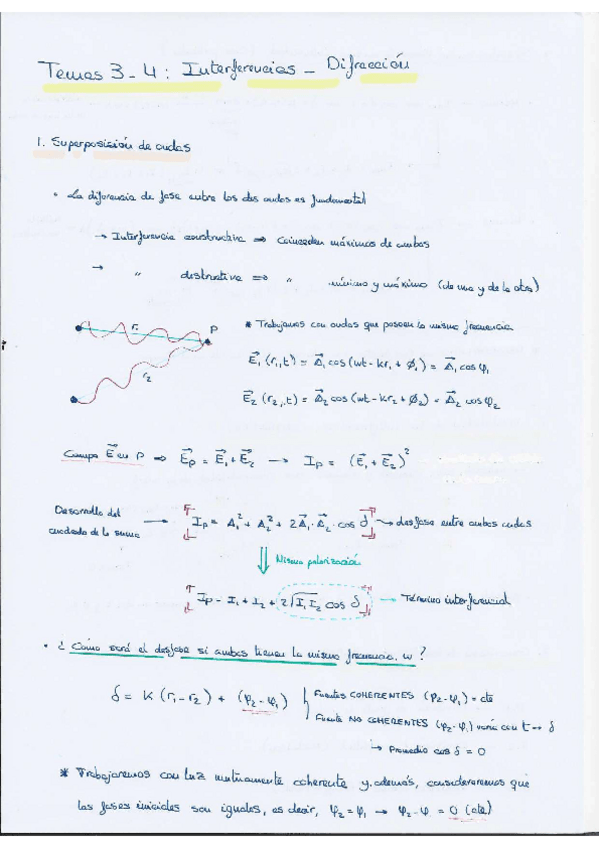 Temas 3-4: Interferencias - Difracción
1. Superposición de ondas
• La diferencia de fase entre las dos ondas es fundamental
→ Interferencia constructiva ⇒ Coinciden máximos de ambas
→ " destructiva ⇒ " mínimo y máximo (de una y de la otra)
r₁ P
r₂
* Trabajamos con ondas que poseen la misma frecuencia
E⃗₁ (r₁,t) = A⃗₁ cos (wt - kr₁ + ϕ₁) = A⃗₁ cos φ₁
E⃗₂ (r₂,t) = A⃗₂ cos (wt - kr₂ + ϕ₂) = A⃗₂ cos φ₂
Campo E⃗ en P ⇒ E⃗p = E⃗₁ + E⃗₂ → Ip = (E⃗₁ + E⃗₂)²
Desarrollo del
cuadrado de la suma → Ip = A₁² + A₂² + 2A⃗₁·A⃗₂ · cos δ → desfase entre ambas ondas
⇓ Misma polarización
Ip = I₁ + I₂ + 2√I₁I₂ cos δ → Término interferencial
• ¿Cómo será el desfase si ambas tienen la misma frecuencia, w?
δ = K (r₁ - r₂) + (φ₂ - φ₁)
Fuentes COHERENTES (φ₂ - φ₁) = cte
Fuente NO COHERENTES (φ₂ - φ₁) varía con t → δ
↳ Promedio cos δ = 0
* Trabajaremos con luz mutuamente coherente y, además, consideraremos que
las fases iniciales son iguales, es decir, φ₂ = φ₁ → φ₂ - φ₁ = 0 (cte)